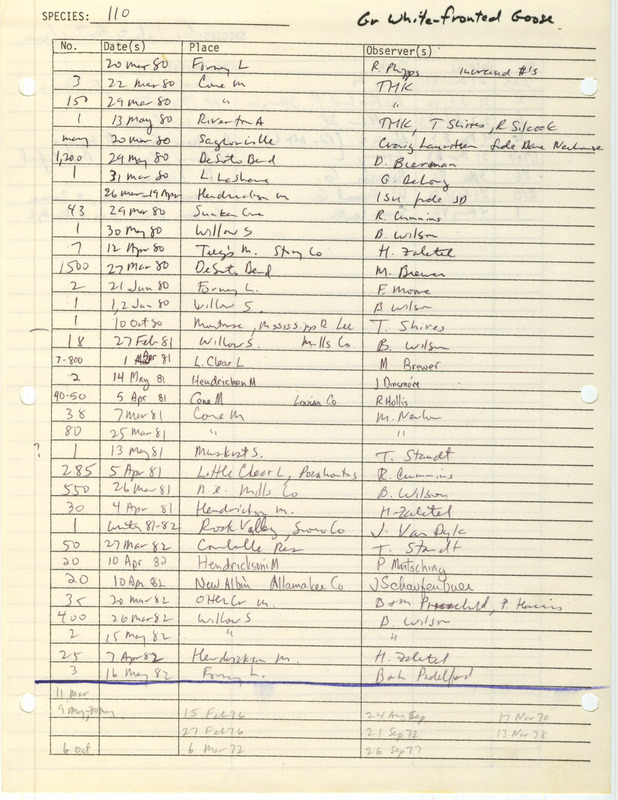 SPECIES: 110 Gr White-fronted Goose
No. Date(s) Place Observer(s)
20 mar 80 Forney L R. Phipps increased #'s
3 22 Mar 80 Cone m TMK
150 29 mar 80 " "
1 13 may 80 Riverton A TMK, T Shires, R Silcock
many 20 mar 80 Saylorville Craig fide Dave
1,200 29 May 80 DeSoto Bend D. Bierman
1 31 mar 80 L. G. DeLong
26 mar-19 Apr Hendrickson m ISU fide JD
43 29 mar 80 Sunken Cave R. Cummins
1 30 may 80 Willow S B. Wilson
7 12 Apr 80 M. Story Co H. Zaletel
1500 27 mar 80 DeSoto Bend M. Brewer
2 21 Jun 80 Forney L. F. Moore
1 1,2 Jun 80 Willow S. B Wilson
1 10 Oct 80 Montrose, Mississipp R Lee T. Shires
18 27 Feb 81 Willow S. Mills Co B. Wilson
7-800 1 Apr 81 L. Clear L M Brewer
2 14 May 81 Hendrickson M J Dinsmore
40-50 5 Apr 81 Cone M Louisa Co R Hollis
38 7 mar 81 Cone m M.
80 25 mar 81 " "
? 1 13 may 81 Muskrat S. T. Staudt
285 5 Apr 81 Little Clear L, Pocahontas R. Cummins
550 26 mar 81 n.e. Mills Co B. Wilson
30 4 Apr 81 Hendrickson m. H Zaletel
1 winter 81-82 Rock Valley, Sioux Co J. Van Dyk
50 27 mar 82 Coralville Res T. Staudt
20 10 Apr 82 Hendrickson M P Martsching
20 10 Apr 82 New Albin Allamakee Co J Schaufenbuel
35 20 mar 82 Otter Cr m. B+m Proescholdt, P. Harris
400 26 mar 82 Willow S B. Wilson
2 15 may 82 " "
25 7 Apr 82 Hendrickson m. H. Zaletel
3 16 May 82 Forney L. B+L Padelford
11 mar
9 may, 30 may 15 Feb 76 24 Aug Sep 17 Nov 70
27 Feb 76 21 Sep 72 13 Nov 78
6 oct 6 mar 72 26 Sep 77